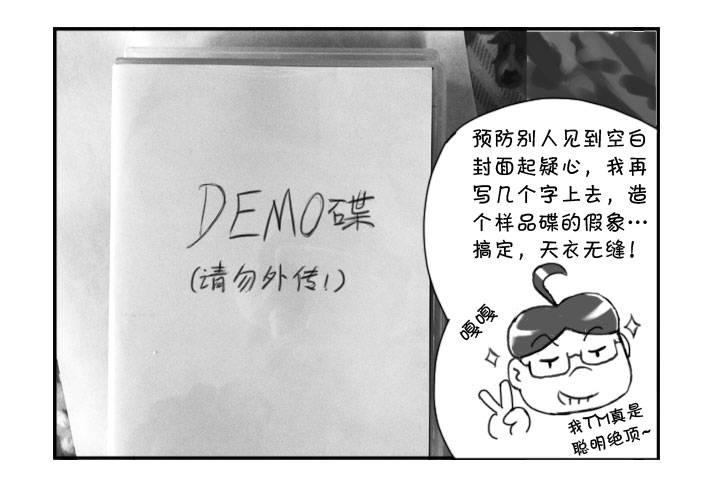 DEMO碟
(请勿外传!)
预防别人见到空白
封面起疑心，我再
写几个字上去，造
个样品碟的假象…
搞定，天衣无缝！
嘎嘎
我TM真是
聪明绝顶~